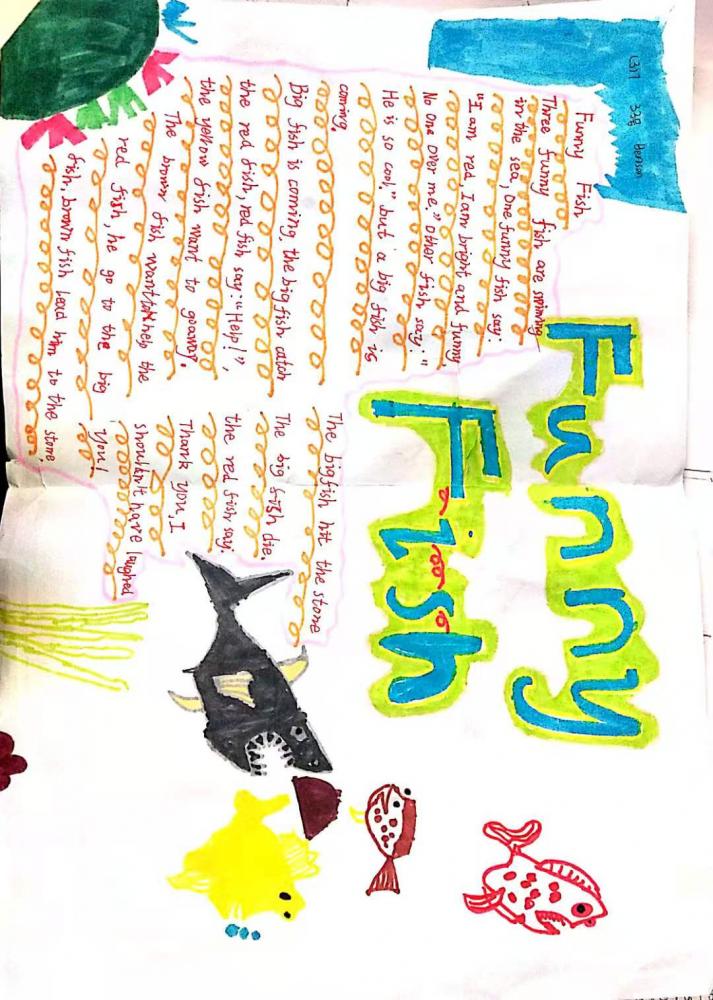 1317 33号 Benson
Funny
Fish
Funny Fish
Three funny fish are swiming
in the sea, One funny fish say:
"I am red, I am bright and funny,
No one over me." Other fish say: "
He is so cool," but a big fish is
coming.
Big fish is coming, the big fish catch
the red fish, red fish say: "Help!",
the yellow fish want to goaway.
The brown fish want to help the
red fish, he go to the big
fish, brown fish lead him to the stone,
The big fish hit the stone
The big fish die.
the red fish say:
Thank you, I
shouldn't have laughed
you!